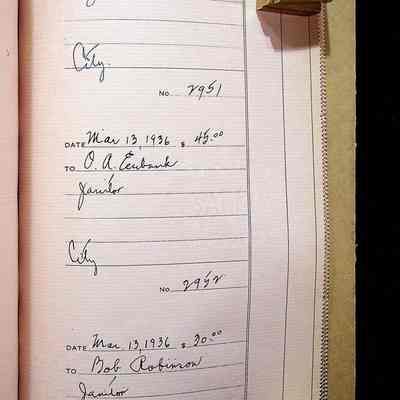 City.
No. 2951
DATE Mar 13, 1936 $ 45.00
TO O. A. Eubank
Janitor
City
No. 2952
DATE Mar 13, 1936 $ 30.00
TO Bob Robinson
Janitor